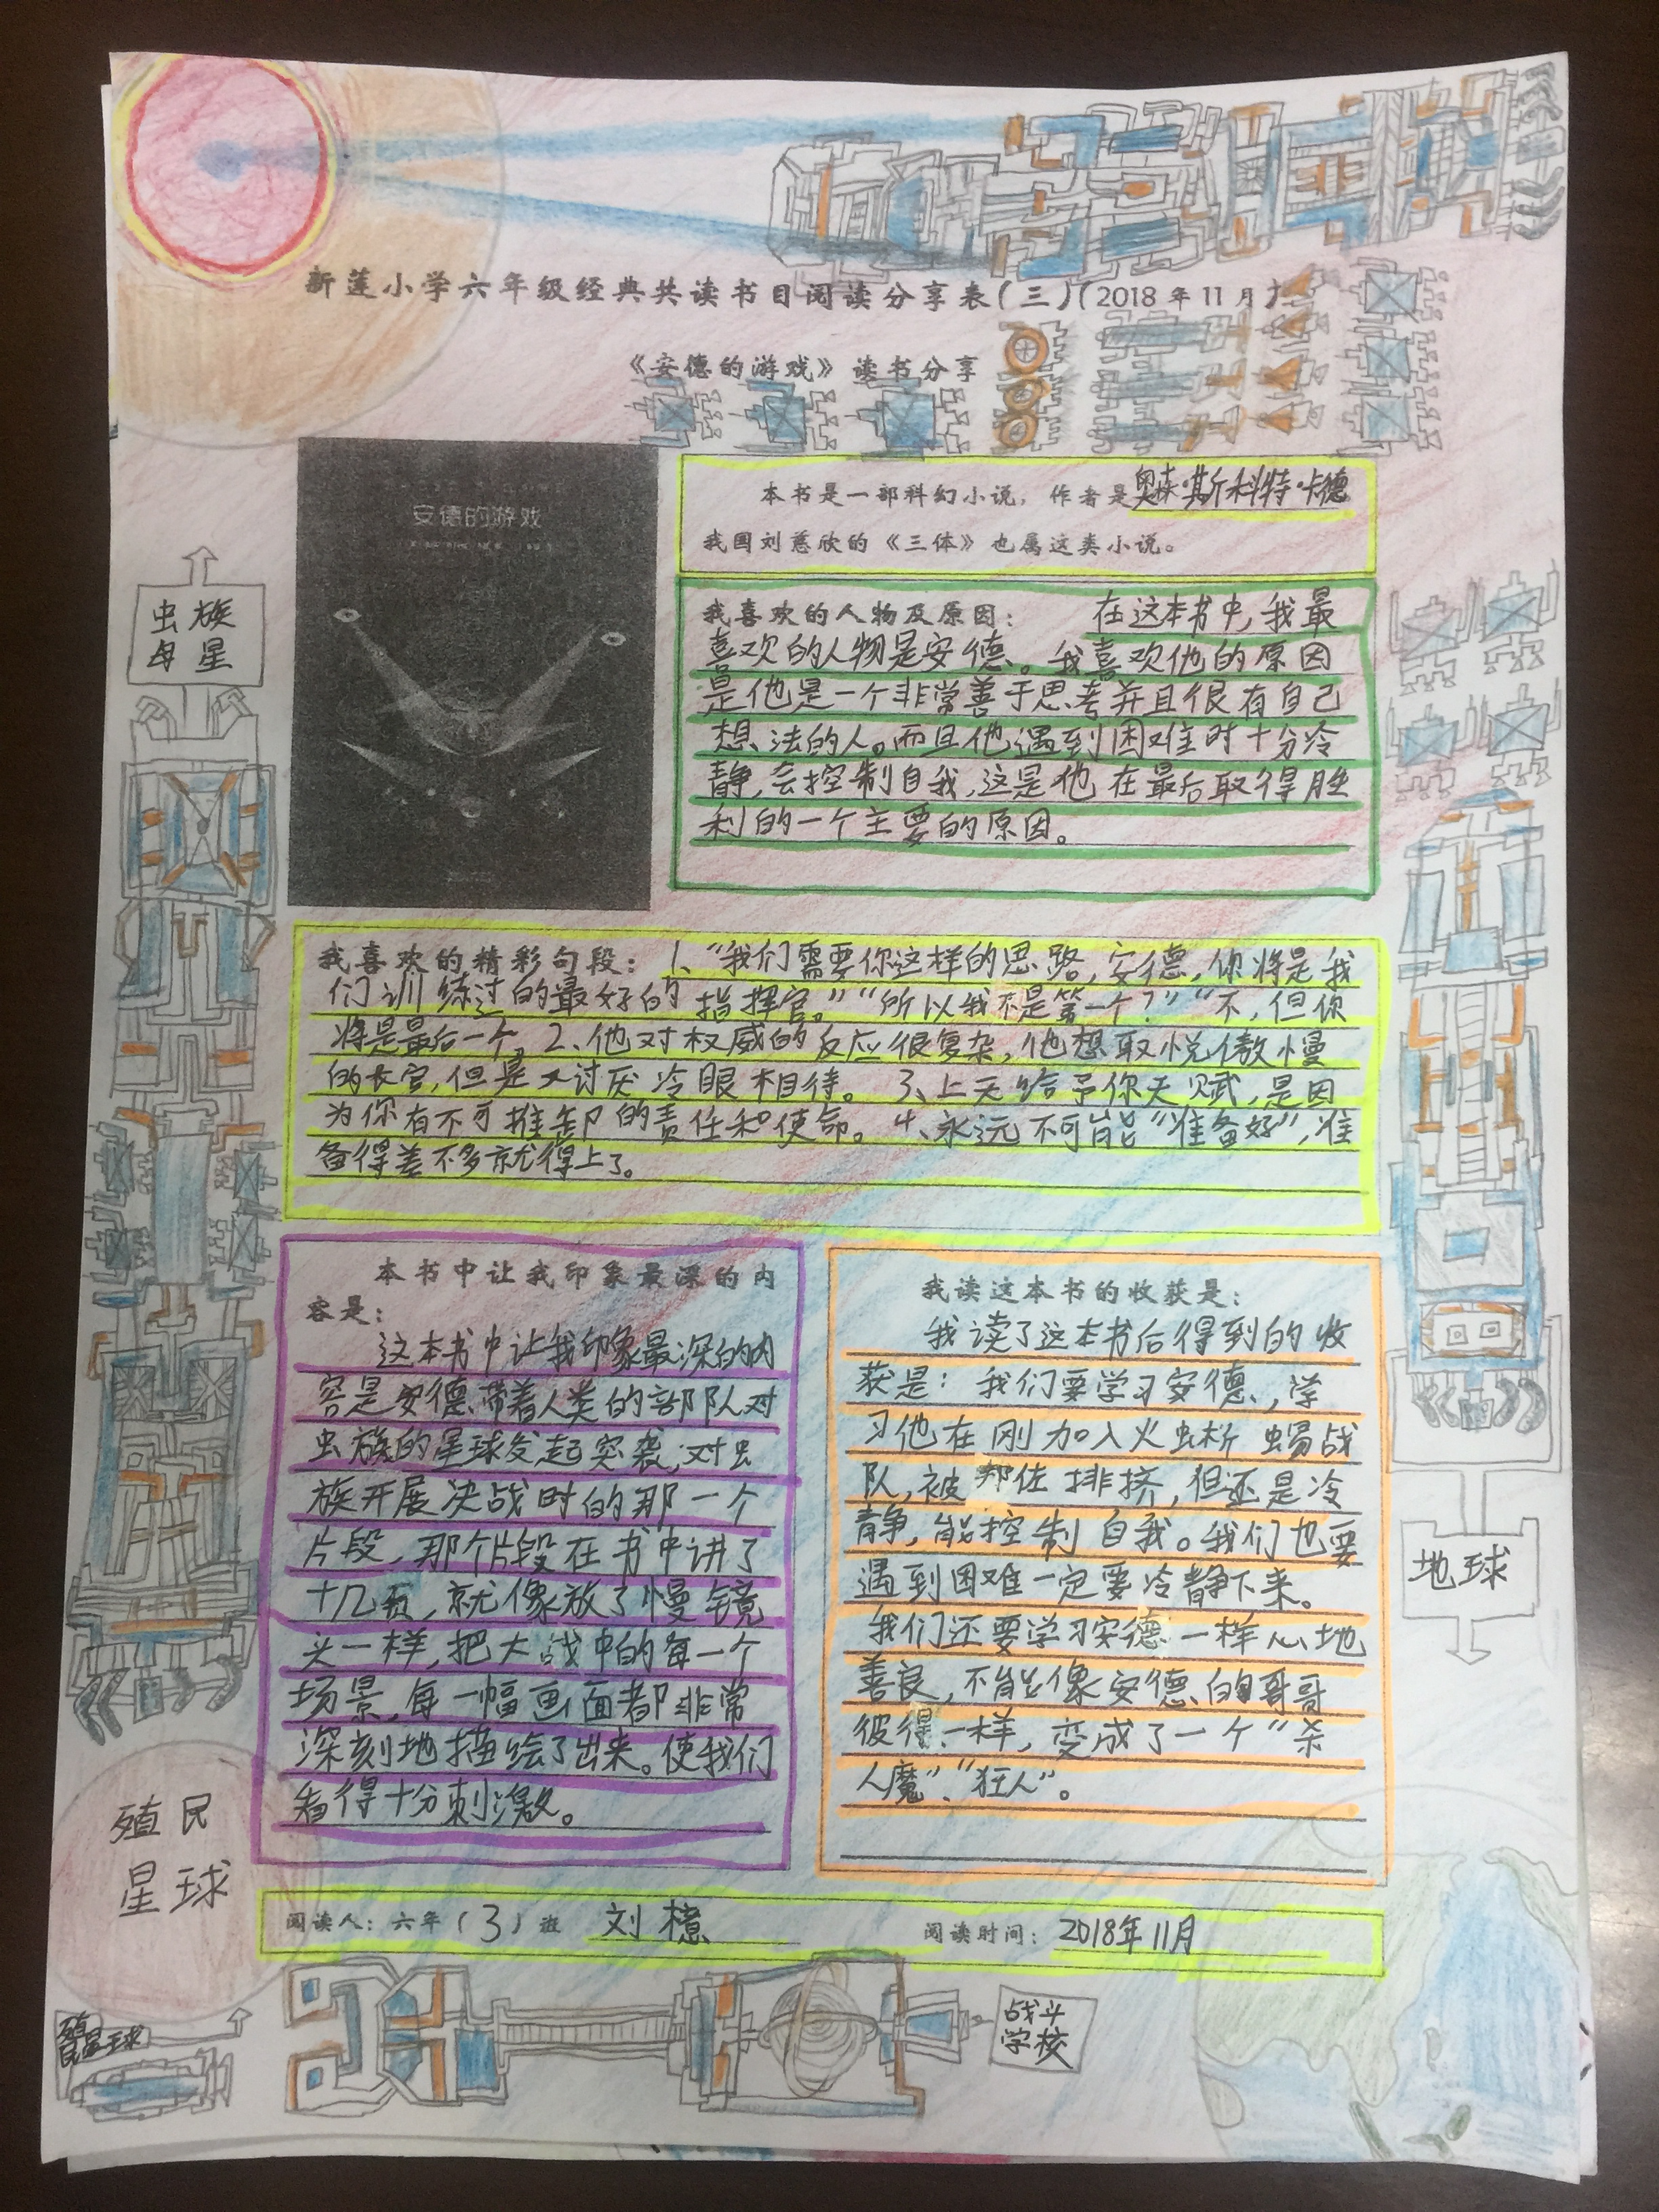 新莲小学六年级经典共读书目阅读分享表(三)(2018年11月)
《安德的游戏》读书分享
安德的游戏
本书是一部科幻小说，作者是奥森·斯科特·卡德
我国刘慈欣的《三体》也属这类小说。
我喜欢的人物及原因：在这本书中，我最
喜欢的人物是安德。我喜欢他的原因
是他是一个非常善于思考并且很有自己
想法的人。而且他遇到困难时十分冷
静，会控制自我，这是他在最后取得胜
利的一个主要的原因。
虫族
母星
我喜欢的精彩句段：1、“我们需要你这样的思路，安德，你将是我
们训练过的最好的指挥官。”“所以我不是第一个？”“不，但你
将是最后一个。2、他对权威的反应很复杂，他想取悦傲慢
的长官，但是又讨厌冷眼相待。3、上天给予你天赋，是因
为你有不可推卸的责任和使命。4、永远不可能“准备好”，准
备得差不多就得上了。
本书中让我印象最深的内
容是：
这本书中让我印象最深的内
容是安德带着人类的部队对
虫族的星球发起突袭，对虫
族开展决战时的那一个
片段，那个片段在书中讲了
十几页，就像放了慢镜
头一样，把大战中的每一个
场景，每一幅画面都非常
深刻地描绘了出来。使我们
看得十分刺激。
我读这本书的收获是：
我读了这本书后得到的收
获是：我们要学习安德，学
习他在刚加入火蜥蜴战
队，被邦佐排挤，但还是冷
静，能控制自我。我们也要
遇到困难一定要冷静下来。
我们还要学习安德一样心地
善良，不能像安德的哥哥
彼得一样，变成了一个“杀
人魔”、“狂人”。
地球
殖民
星球
阅读人：六年(3)班 刘檍 阅读时间：2018年11月
殖
民星球
战斗
学校